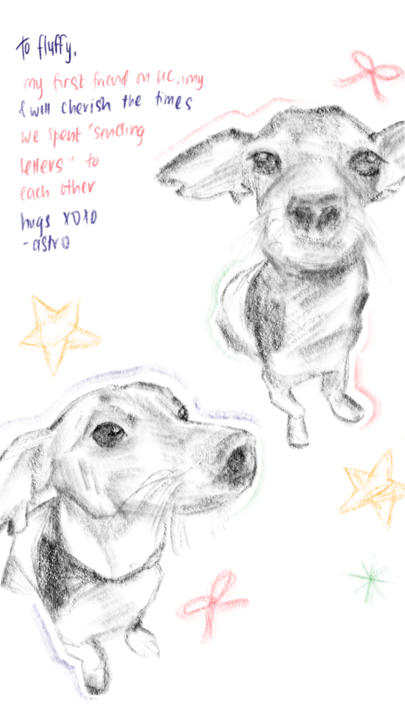 To fluffy,
my first friend on HC, imy
I will cherish the times
we spent "sending
letters" to
each other
hugs XOXO
-astro